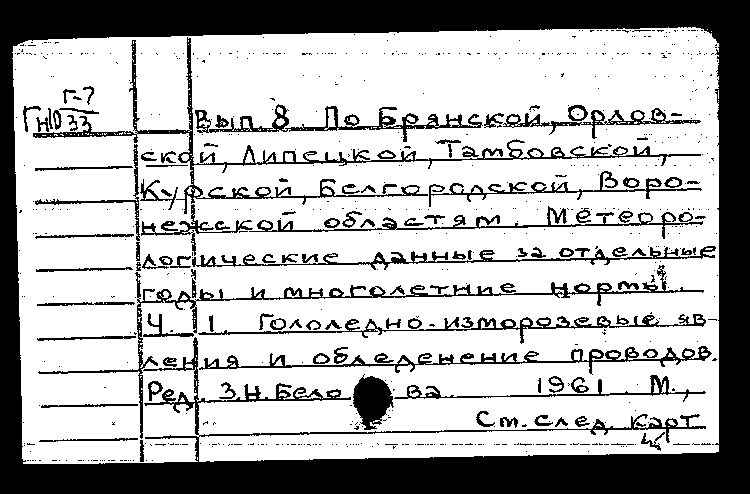 Г-7
ГнЮ 33
Вып. 8. По Брянской, Орлов-
ской, Липецкой, Тамбовской,
Курской, Белгородской, Воро-
нежской областям. Метеоро-
логические данные за отдельные
годы и многолетние нормы.
Ч. 1. Гололедно-изморозевые яв-
ления и обледенение проводов.
Ред. З.Н. Бело ва. 1961 М.,
См. след. карт